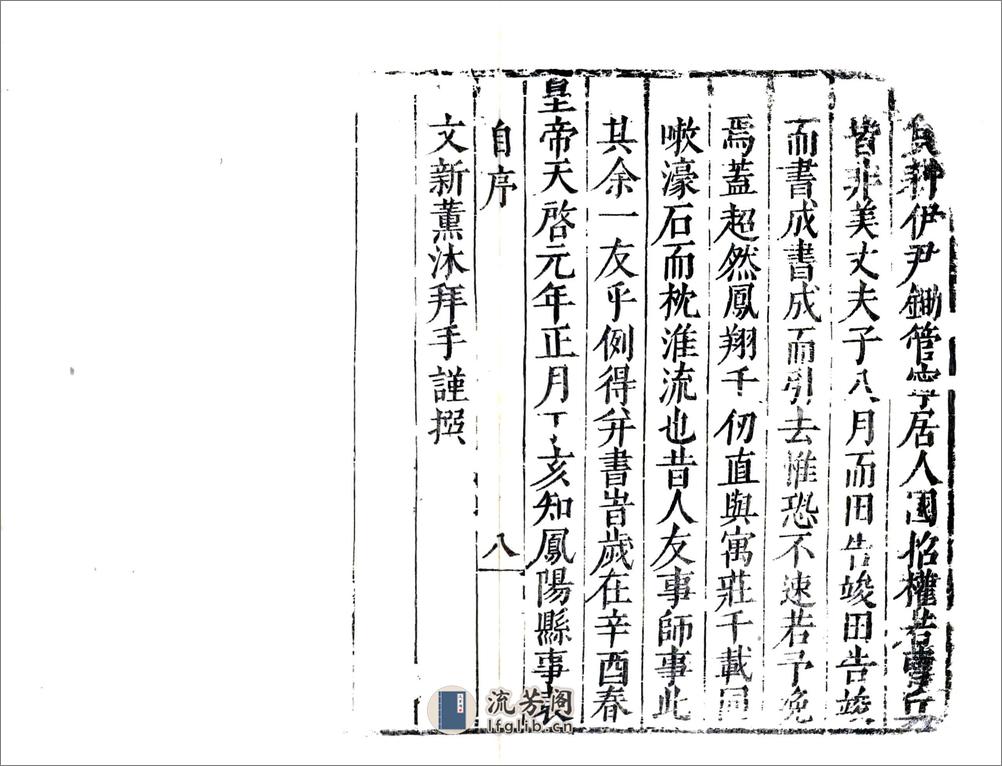 耕伊尹鋤管寧居人國招權若
皆非美丈夫子八月而田告竣田告竣
而書成書成而引去惟恐不速若予免
焉蓋超然鳳翔千仞直與寓莊千載同
嗽濠石而枕淮流也昔人友事師事此
其余一友乎例得弁書旹歲在辛酉春
皇帝天啓元年正月丁亥知鳳陽縣事袁
自序 八
文新薰沐拜手謹撰
流芳阁
lfglib.cn